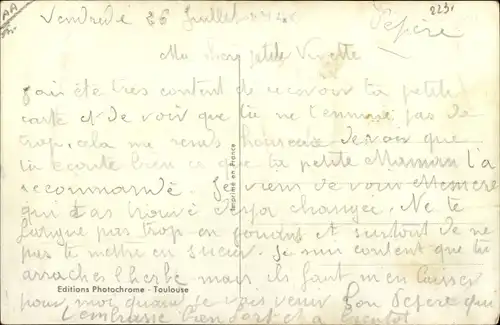 AA
2231
Vendredi 26 Juillet
Pepère
Ma chère petite Vivette
j'ai été très content de recevoir ta petite
carte et de voir que tu ne t'ennuie pas de
trop, cela me rends heureux de voir que
tu écoute bien ce que ta petite Maman t'a
recommandé. Je viens de voir Memère
qui t'as trouvé changée. Ne te
fatigue pas trop en jouant et surtout de ne
pas te mettre en sueur. Je suis content que tu
arraches l'herbe mais il faut m'en laisser
pour moi quand je vais venir Ton Pepère qui
t'embrasse bien fort et à bientot
Imprimé en France
Editions Photochrome - Toulouse